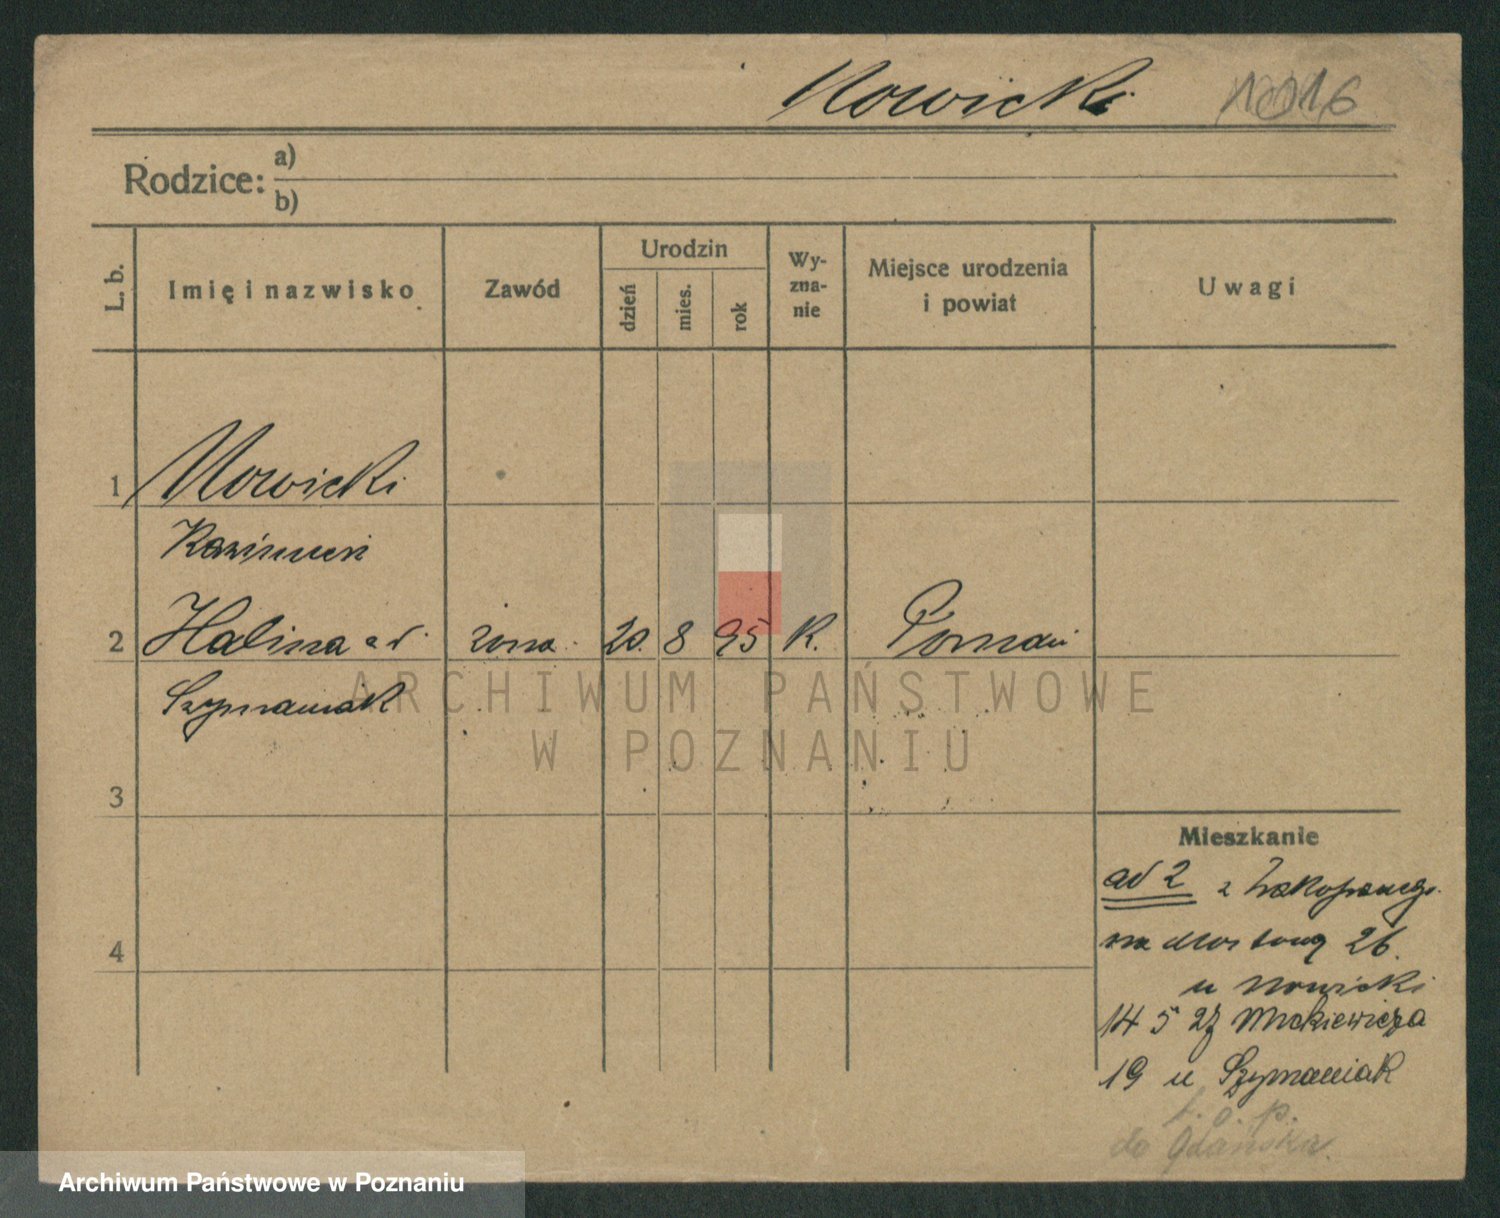 Nowicki 1016
Rodzice: a)
b)
L. b.
Imię i nazwisko
Zawód
Urodzin
dzień
mies.
rok
Wy-
zna-
nie
Miejsce urodzenia
i powiat
Uwagi
1 Nowicki
Kazimierz
2 Halina ad. żona 20. 8 95 K. Poznań
Szymaniak
ARCHIWUM PAŃSTWOWE
W POZNANIU
3
4
Mieszkanie
ad 2 z Zakopanego
na 26.
u Nowicki
14 5 27 Mickiewicza
19 u Szymaniak
t. o. p.
do Gdańska.
Archiwum Państwowe w Poznaniu